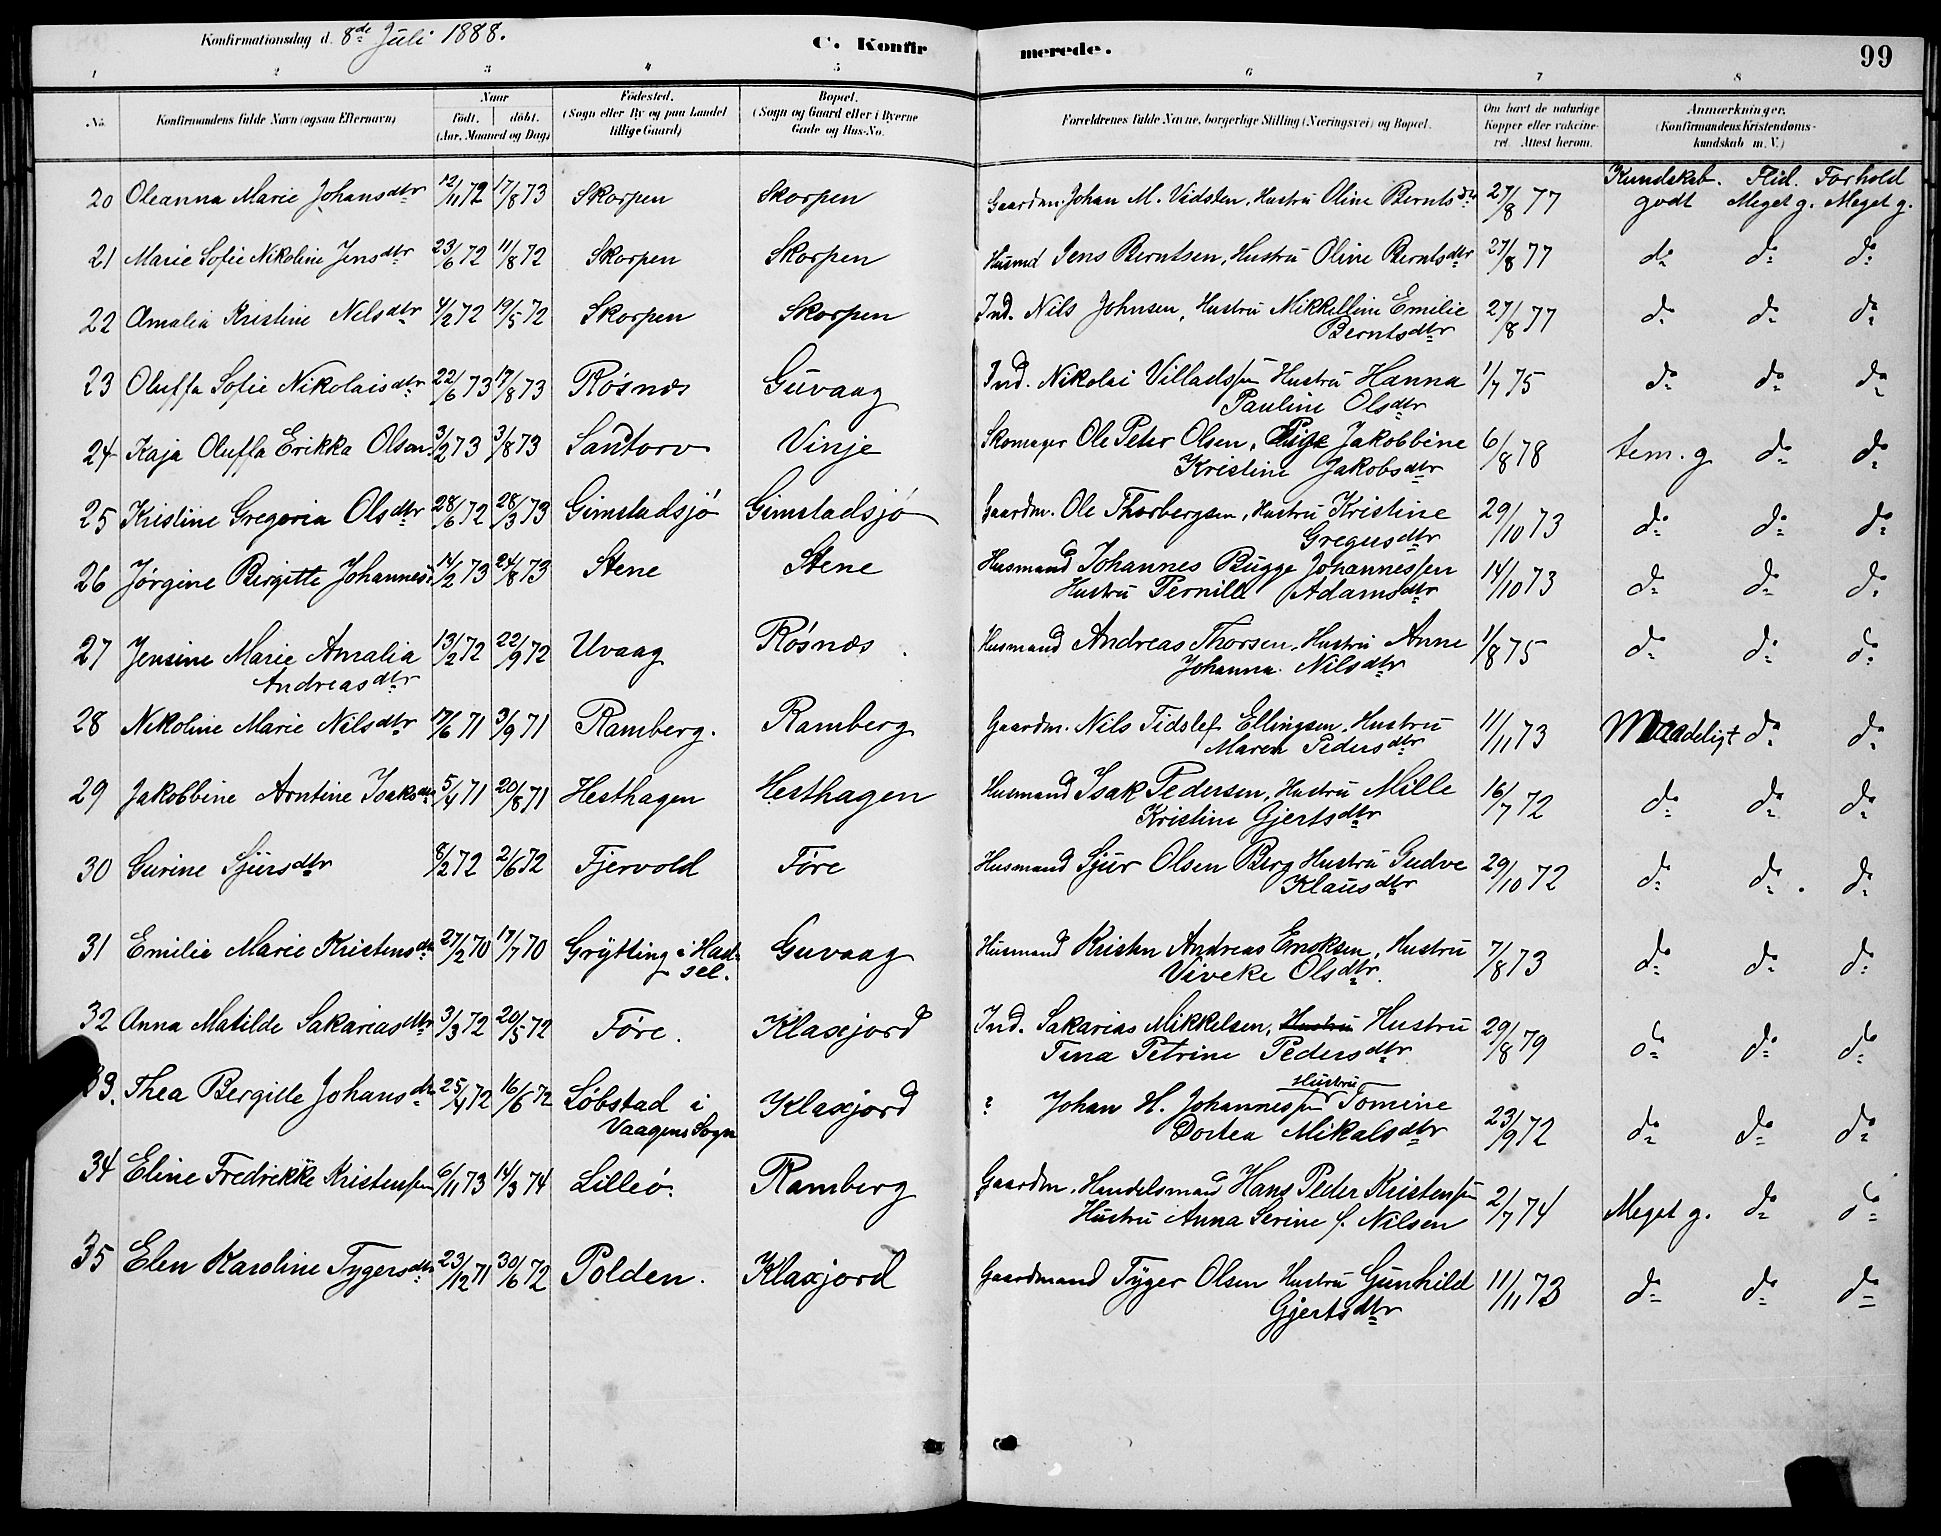 Konfirmationsdag d. 8de Juli 1888. C. Konfirmerede. 99
1 2 3 4 5 6 7 8
No. Konfirmandens fulde Navn (ogsaa Efternavn) Naar Født. døbt. (Aar, Maaned og Dag) Födested. (Sogn eller By og paa Landet tillige Gaard) Bopæl. (Sogn og Gaard eller i Byerne Gade og Hus-No. Forældrenes fulde Navne, borgerlige Stilling (Næringsvei) og Bopæl. Om havt de naturlige Kopper eller vakcineret. Attest herom. Anmærkninger, (Konfirmandens Kristendomskundskab m. V.)
Kundskab. Flid. Forhold
20 Oleanna Marie Johansdtr 12/11 72 17/8 73 Skorpen Skorpen Gaardm. Johan M. Vidsten, Hustru Oline Berntsdtr 27/8 77 godt Meget g. Meget g.
21 Marie Sofie Nikoline Jensdtr 23/6 72 11/8 72 Skorpen Skorpen Husmd Jens Berntsen, Hustru Oline Berntsdtr 27/8 77 do do do
22 Amalia Kristine Nelsdtr 4/2 72 19/5 72 Skorpen Skorpen Ind. Nils Johnsen, Hustru Mikkelline Emilie
Berntsdtr 27/8 77 do do do
23 Oluffa Sofie Nikolaisdtr 22/6 73 17/8 73 Røsnæs Guvaag Ind. Nikolai Villadssen Hustru Hanna
Pauline Olsdtr 1/7 75 do do do
24 Kaja Oluffa Erikka Olsen 3/2 73 3/8 73 Sandtorv Vinje Skomager Ole Peter Olsen, Pige Jakobbine
Kristine Jakobsdtr 6/8 78 tem. g do do
25 Kristine Gregoria Olsdtr 28/6 72 28/3 73 Gimstadsjö Gimstadsjö Gaardm. Ole Thorbergsen, Hustru Kristine
Gregusdtr 29/10 73 do do do
26 Jørgine Birgitte Johannesd. 14/2 73 24/8 73 Stene Stene Husmand Johannes Bugge Johannessen
Hustru Pernille Adamsdtr 14/10 73 do do do
27 Jensine Marie Amalia 13/2 72 22/9 72 Uvaag Røsnæs. Husmand Andreas Thorsen, Hustru Anne
Andreasdtr Johanna Nilsdtr 1/8 75 do do do
28 Nikoline Marie Nilsdtr 17/6 71 3/9 71 Ramberg. Ramberg Gaardm. Nils Tidslef Ellingsen, Hustru
Maren Pedersdtr 11/11 73 Maadeligt do do
29 Jakobbine Arntine Isaksdtr 5/4 71 20/8 71 Hesthagen Hesthagen Husmand Isak Pedersen, Hustru Mille
Kristine Gjertsdtr 16/7 72 do do do
30 Gurine Sjursdtr 8/2 72 2/6 72 Fjervold Føre Husmand Sjur Olsen Berg Hustru Gudve
Klausdtr 29/10 72 do do. do
31 Emilie Marie Kristensdtr 27/2 70 17/7 70 Grytting i Had- Guvaag Husmand Kristen Andreas Enoksen, Hustru
sel. Viveke Olsdtr. 7/8 73 do do do
32 Anna Matilde Sakariasdtr 3/3 72 20/5 72 Føre. Klaxjord Ind. Sakarias Mikkelsen, Hustru Hustru
Tina Petrine Pedersdtr 29/8 79 do do do
33. Thea Bergitte Johansdtr 25/4 72 16/6 72 Løbstad i Klaxjord ? Johan H. Johannessen Hustru Tomine
Vaagens Sogn Dortea Mikalsdtr 23/9 72 do do do
34 Eline Fredrikke Kristensen 6/11 73 14/3 74 Lilleö. Ramberg Gaardm. Handelsmand Hans Peder Kristensen
Hustru Anna Serine f. Nilsen 2/7 74 Meget g. do do
35 Elen Karoline Tygersdtr 23/12 71 30/6 72 Polden. Klaxjord Gaardmand Tyger Olsen Hustru Gunhild
Gjertsdtr 11/11 73 do do do